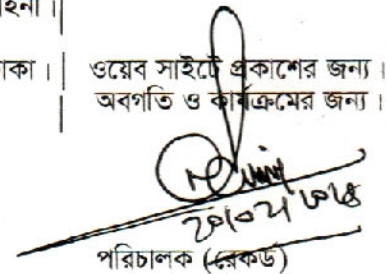 হিনী।
াকা। ওয়েব সাইটে প্রকাশের জন্য।
অবগতি ও কার্যক্রমের জন্য।
পরিচালক (রেকর্ড)